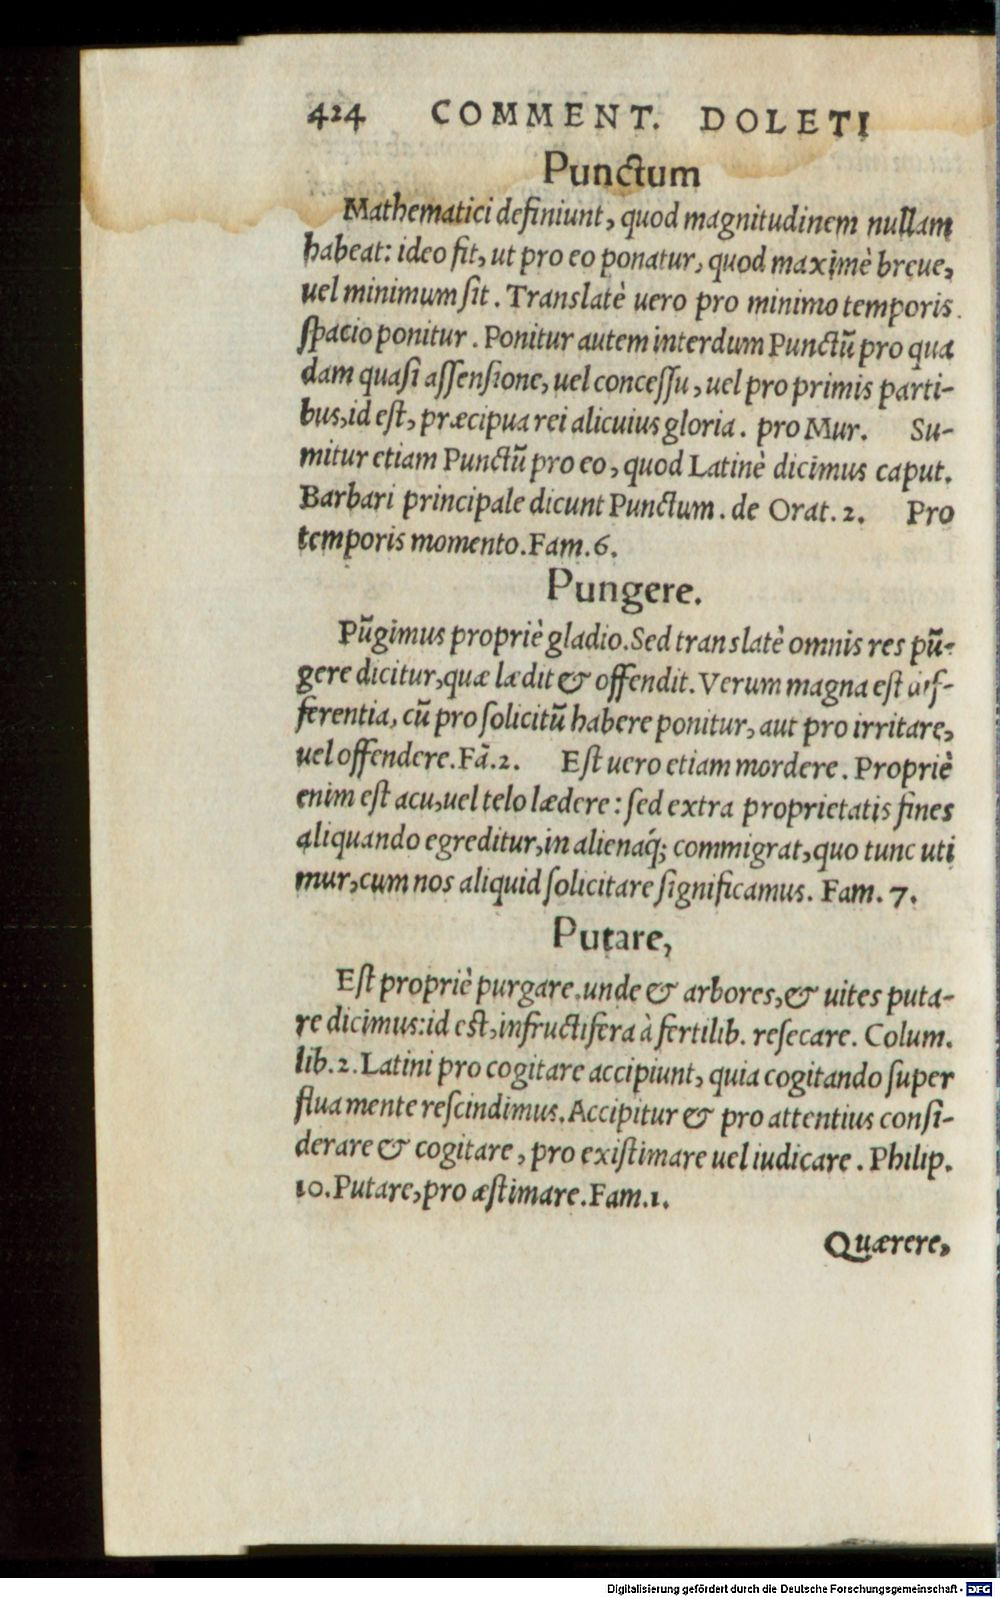 424 COMMENT. DOLETI
Punctum
Mathematici definiunt, quod magnitudinem nullam
habeat: ideo fit, ut pro eo ponatur, quod maximè breue,
uel minimum sit. Translatè uero pro minimo temporis
spacio ponitur. Ponitur autem interdum Punctũ pro qua
dam quasi assensione, uel concessu, uel pro primis parti-
bus, id est, præcipua rei alicuius gloria. pro Mur. Su-
mitur etiam Punctũ pro eo, quod Latinè dicimus caput.
Barbari principale dicunt Punctum. de Orat. 2. Pro
temporis momento. Fam. 6.
Pungere.
Pũgimus propriè gladio. Sed translatè omnis res pũ-
gere dicitur, quæ lædit & offendit. Verum magna est dif-
ferentia, cũ pro solicitũ habere ponitur, aut pro irritare,
uel offendere. Fã. 2. Est uero etiam mordere. Propriè
enim est acu, uel telo lædere: sed extra proprietatis fines
aliquando egreditur, in alienaq́; commigrat, quo tunc uti
mur, cum nos aliquid solicitare significamus. Fam. 7.
Putare,
Est propriè purgare. unde & arbores, & uites puta-
re dicimus: id est, infructifera à fertilib. resecare. Colum.
lib. 2. Latini pro cogitare accipiunt, quia cogitando super
flua mente rescindimus. Accipitur & pro attentius consi-
derare & cogitare, pro existimare uel iudicare. Philip.
10. Putare, pro æstimare. Fam. 1.
Quærere,
Digitalisierung gefördert durch die Deutsche Forschungsgemeinschaft - DFG